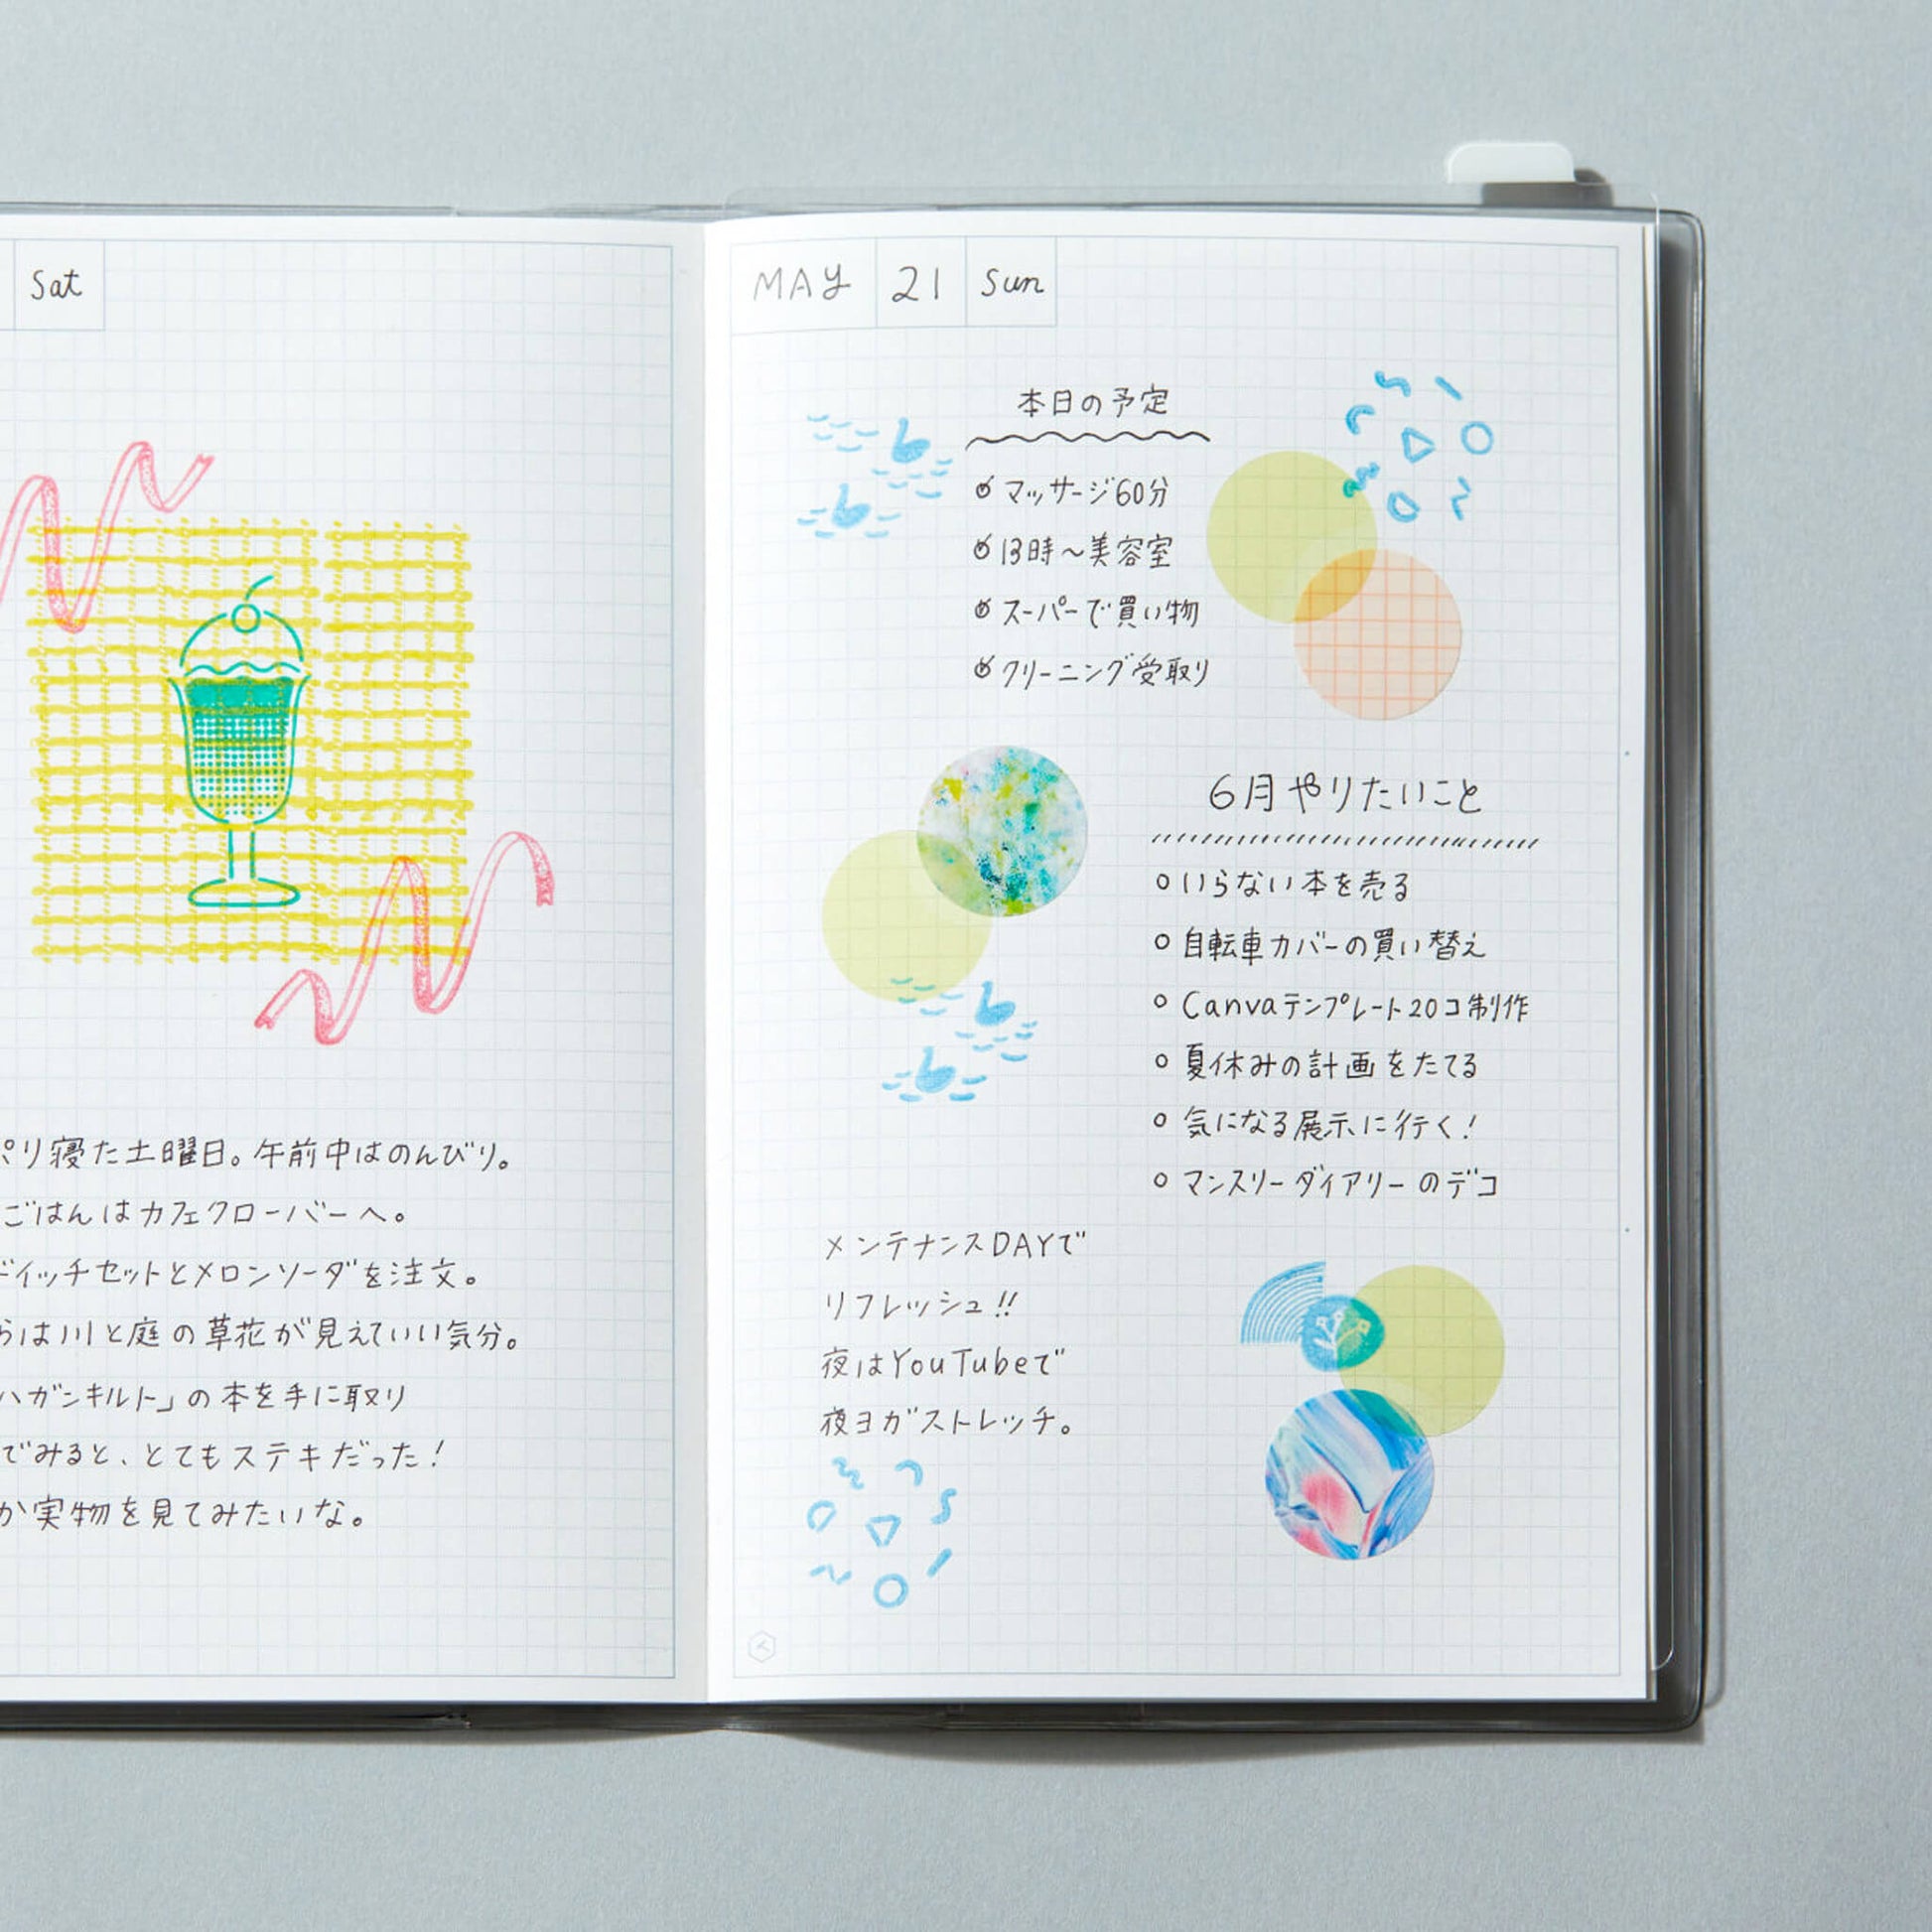 Sat
ぱり寝た土曜日。午前中はのんびり。
ごはんはカフェクローバーへ。
ドイッチセットとメロンソーダを注文。
らは川と庭の草花が見えていい気分。
ハガンキルト」の本を手に取り
でみると、とてもステキだった!
か実物を見てみたいな。
MAY 21 Sun
本日の予定
マッサージ60分
13時〜美容室
スーパーで買い物
クリーニング受取り
6月やりたいこと
○いらない本を売る
○自転車カバーの買い替え
○Canvaテンプレート20コ制作
○夏休みの計画をたてる
○気になる展示に行く!
○マンスリーダイアリーのデコ
メンテナンスDAYで
リフレッシュ!!
夜はYouTubeで
夜ヨガストレッチ。